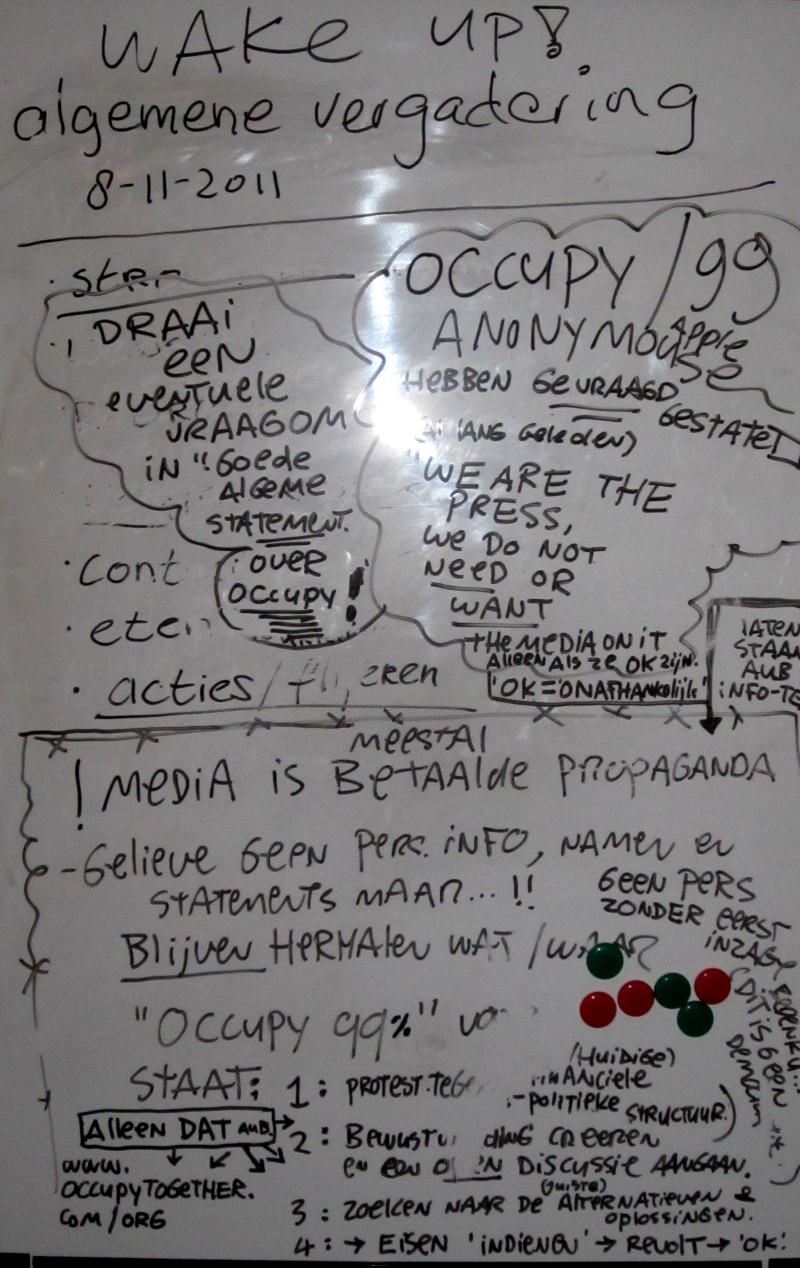 WAKE UP!
algemene vergadering
8-11-2011
DRAAI
EEN
EVENTUELE
VRAAG OM
IN "GOEDE
ALGEME
STATEMENT.
OVER
OCCUPY!
· cont
·
· acties/
OCCUPY/99
ANONYMOUSE
HEBBEN GEVRAAGD
GESTATET
LANG GELEDEN)
"WE ARE THE
PRESS,
WE DO NOT
NEED OR
WANT
THE MEDIA ON IT
ALLEEN ALS ZE OK ZIJN.
'OK='ONAFHANKELIJK'
LATEN
STAAN
AUB
INFO-TE
MEESTAL
! MEDIA IS BETAALDE PROPAGANDA
-GELIEVE GEEN PERS. INFO, NAMEN EN
STATEMENTS MAAR...!!
BLIJVEN HERHALEN WAT /
GEEN PERS
ZONDER EERST
INZAGE
DIT IS GEEN
"OCCUPY 99%"
STAAT: 1: PROTEST
(HUIDIGE)
FINANCIELE
-POLITIEKE STRUCTUUR.)
ALLEEN DAT AUB
2: CREEREN
EN EEN DISCUSSIE AANGAAN.
WWW.
OCCUPYTOGETHER.
COM/ORG
(JUISTE)
3: ZOEKEN NAAR DE ALTERNATIEVEN &
OPLOSSINGEN.
4: → EISEN 'INDIENEN' → REVOLT → 'OK!